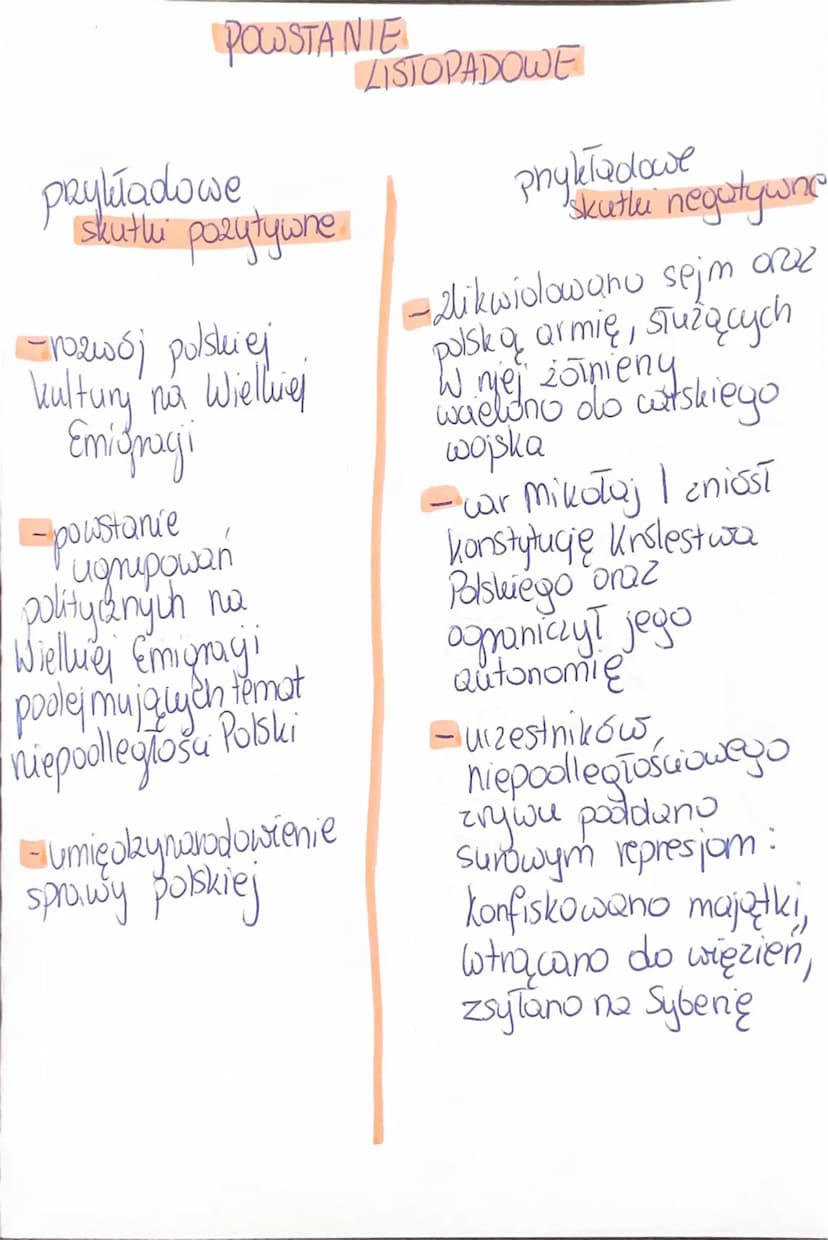 POWSTANIE
LISTOPADOWE
przykładowe
skutki pozytywne
- rozwój polskiej
kultury na Wielkiej
Emigracji
- powstanie
ugrupowań
politycznych na
Wielkiej Emigracji
podejmujących temat
niepodległości Polski
- umiędzynarodowienie
sprawy polskiej
przykładowe
skutki negatywne
- zlikwidowano sejm oraz
polską armię, służących
w niej żołnierzy
wcielono do carskiego
wojska
- car Mikołaj I zniósł
konstytucję Królestwa
Polskiego oraz
ograniczył jego
autonomię
- uczestników
niepodległościowego
zrywu poddano
surowym represjom:
konfiskowano majątki,
wtrącano do więzień,
zsyłano na Syberię